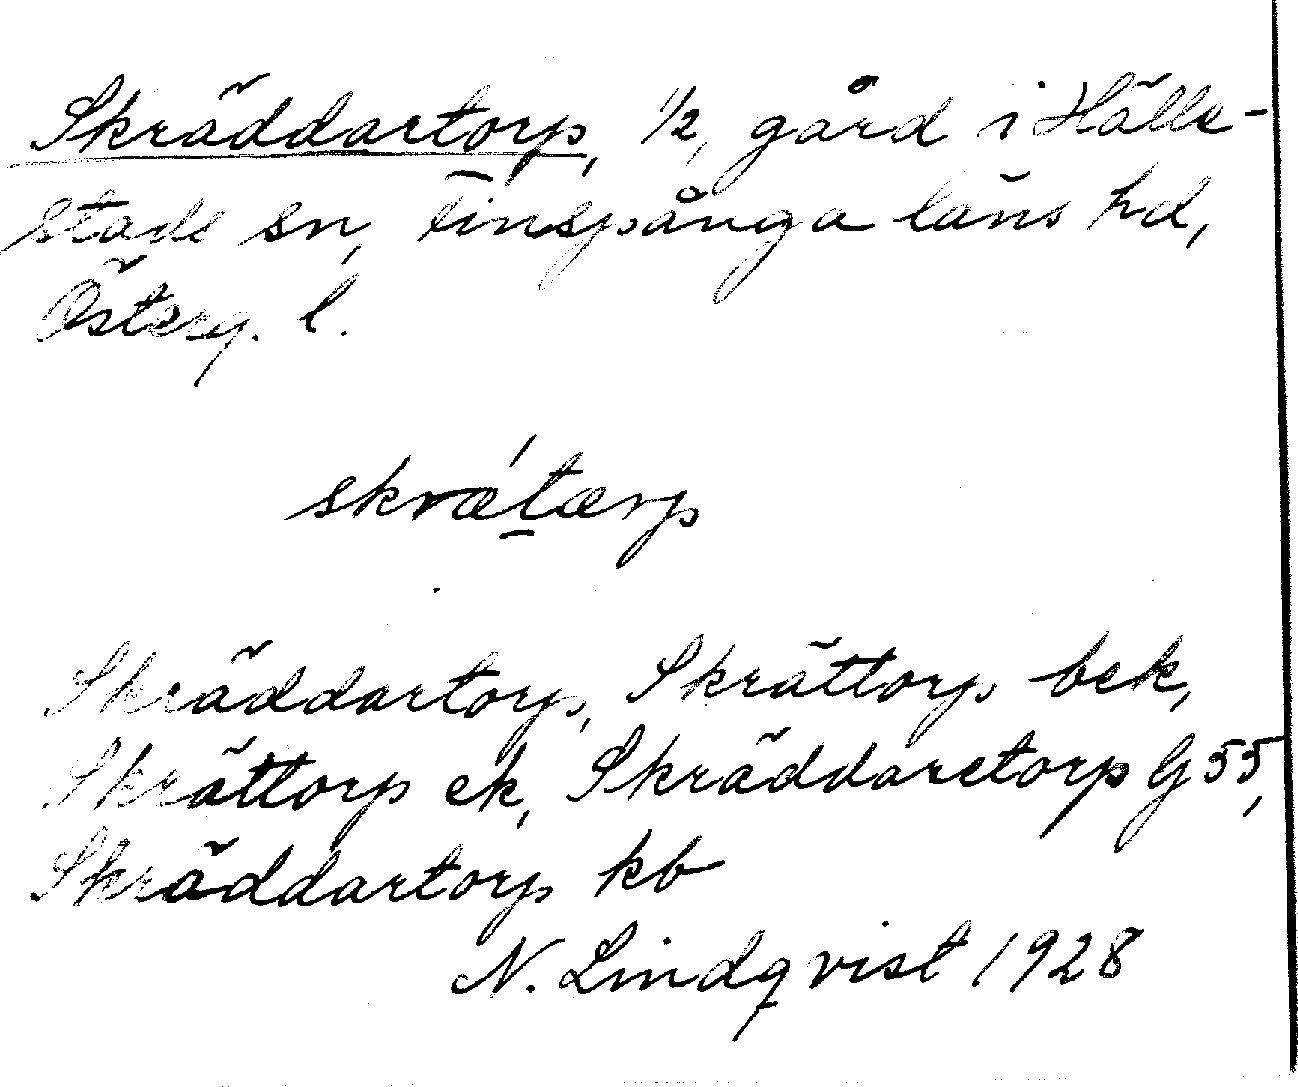 Skräddartorp, 1/2, gård i Hälle-
stads sn, Finspånga läns hd,
Österg. l.
skrǽt̲ærp
Skräddartorp, Skrättorp bek,
Skrättorp ek, Skräddaretorp G 55,
Skräddartorp kb
N. Lindqvist 1928